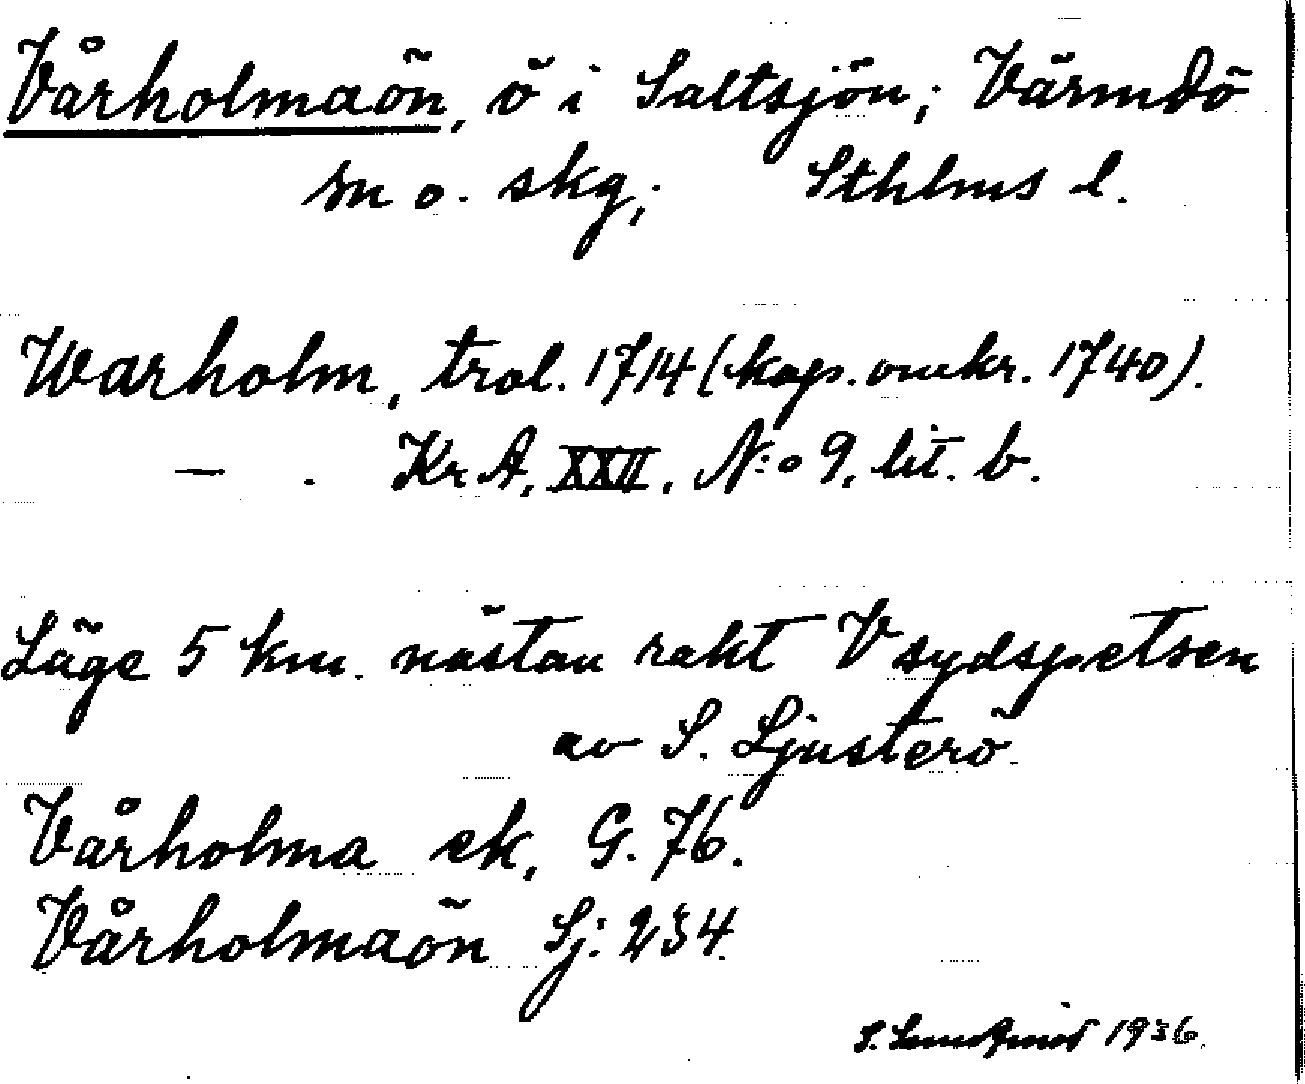 Vårholmaön, ö i Saltsjön; Värmdö
sn o. skg; Sthlms l.
Warholm, trol. 1714 (kop. omkr. 1740).
— . Kr A, XXII, N:o 9, lit. b.
Läge 5 km. nästan rakt V sydspetsen
av S. Ljusterö.
Vårholma ek, G. 76.
Vårholmaön Sj: 234.
S. Lundqvist 1936.